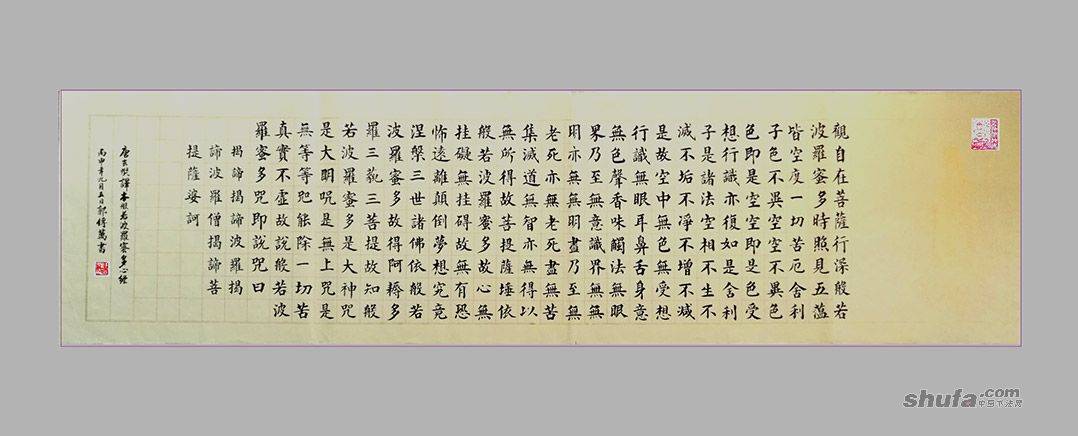 觀自在菩薩行深般若
波羅蜜多時照見五蘊
皆空度一切苦厄舍利
子色不異空空不異色
色即是空空即是色受
想行識亦復如是舍利
子是諸法空相不生不
滅不垢不淨不增不減
是故空中無色無受想
行識無眼耳鼻舌身意
無色聲香味觸法無眼
界乃至無意識界無無
明亦無無明盡乃至無
老死亦無老死盡無苦
集滅道無智亦無得以
無所得故菩提薩埵依
般若波羅蜜多故心無
挂礙無挂碍故無有恐
怖遠離顛倒夢想究竟
涅槃三世諸佛依般若
波羅蜜多故得阿耨多
羅三藐三菩提故知般
若波羅蜜多是大神咒
是大明咒是無上咒是
無等等咒能除一切苦
真實不虛故說般若波
羅蜜多咒即說咒曰
揭諦揭諦波羅揭
諦波羅僧揭諦菩
提薩婆訶
唐玄奘譯本般若波羅蜜多心經
丙申年九月五日郭傳萬書
shufa.com
中国书法网